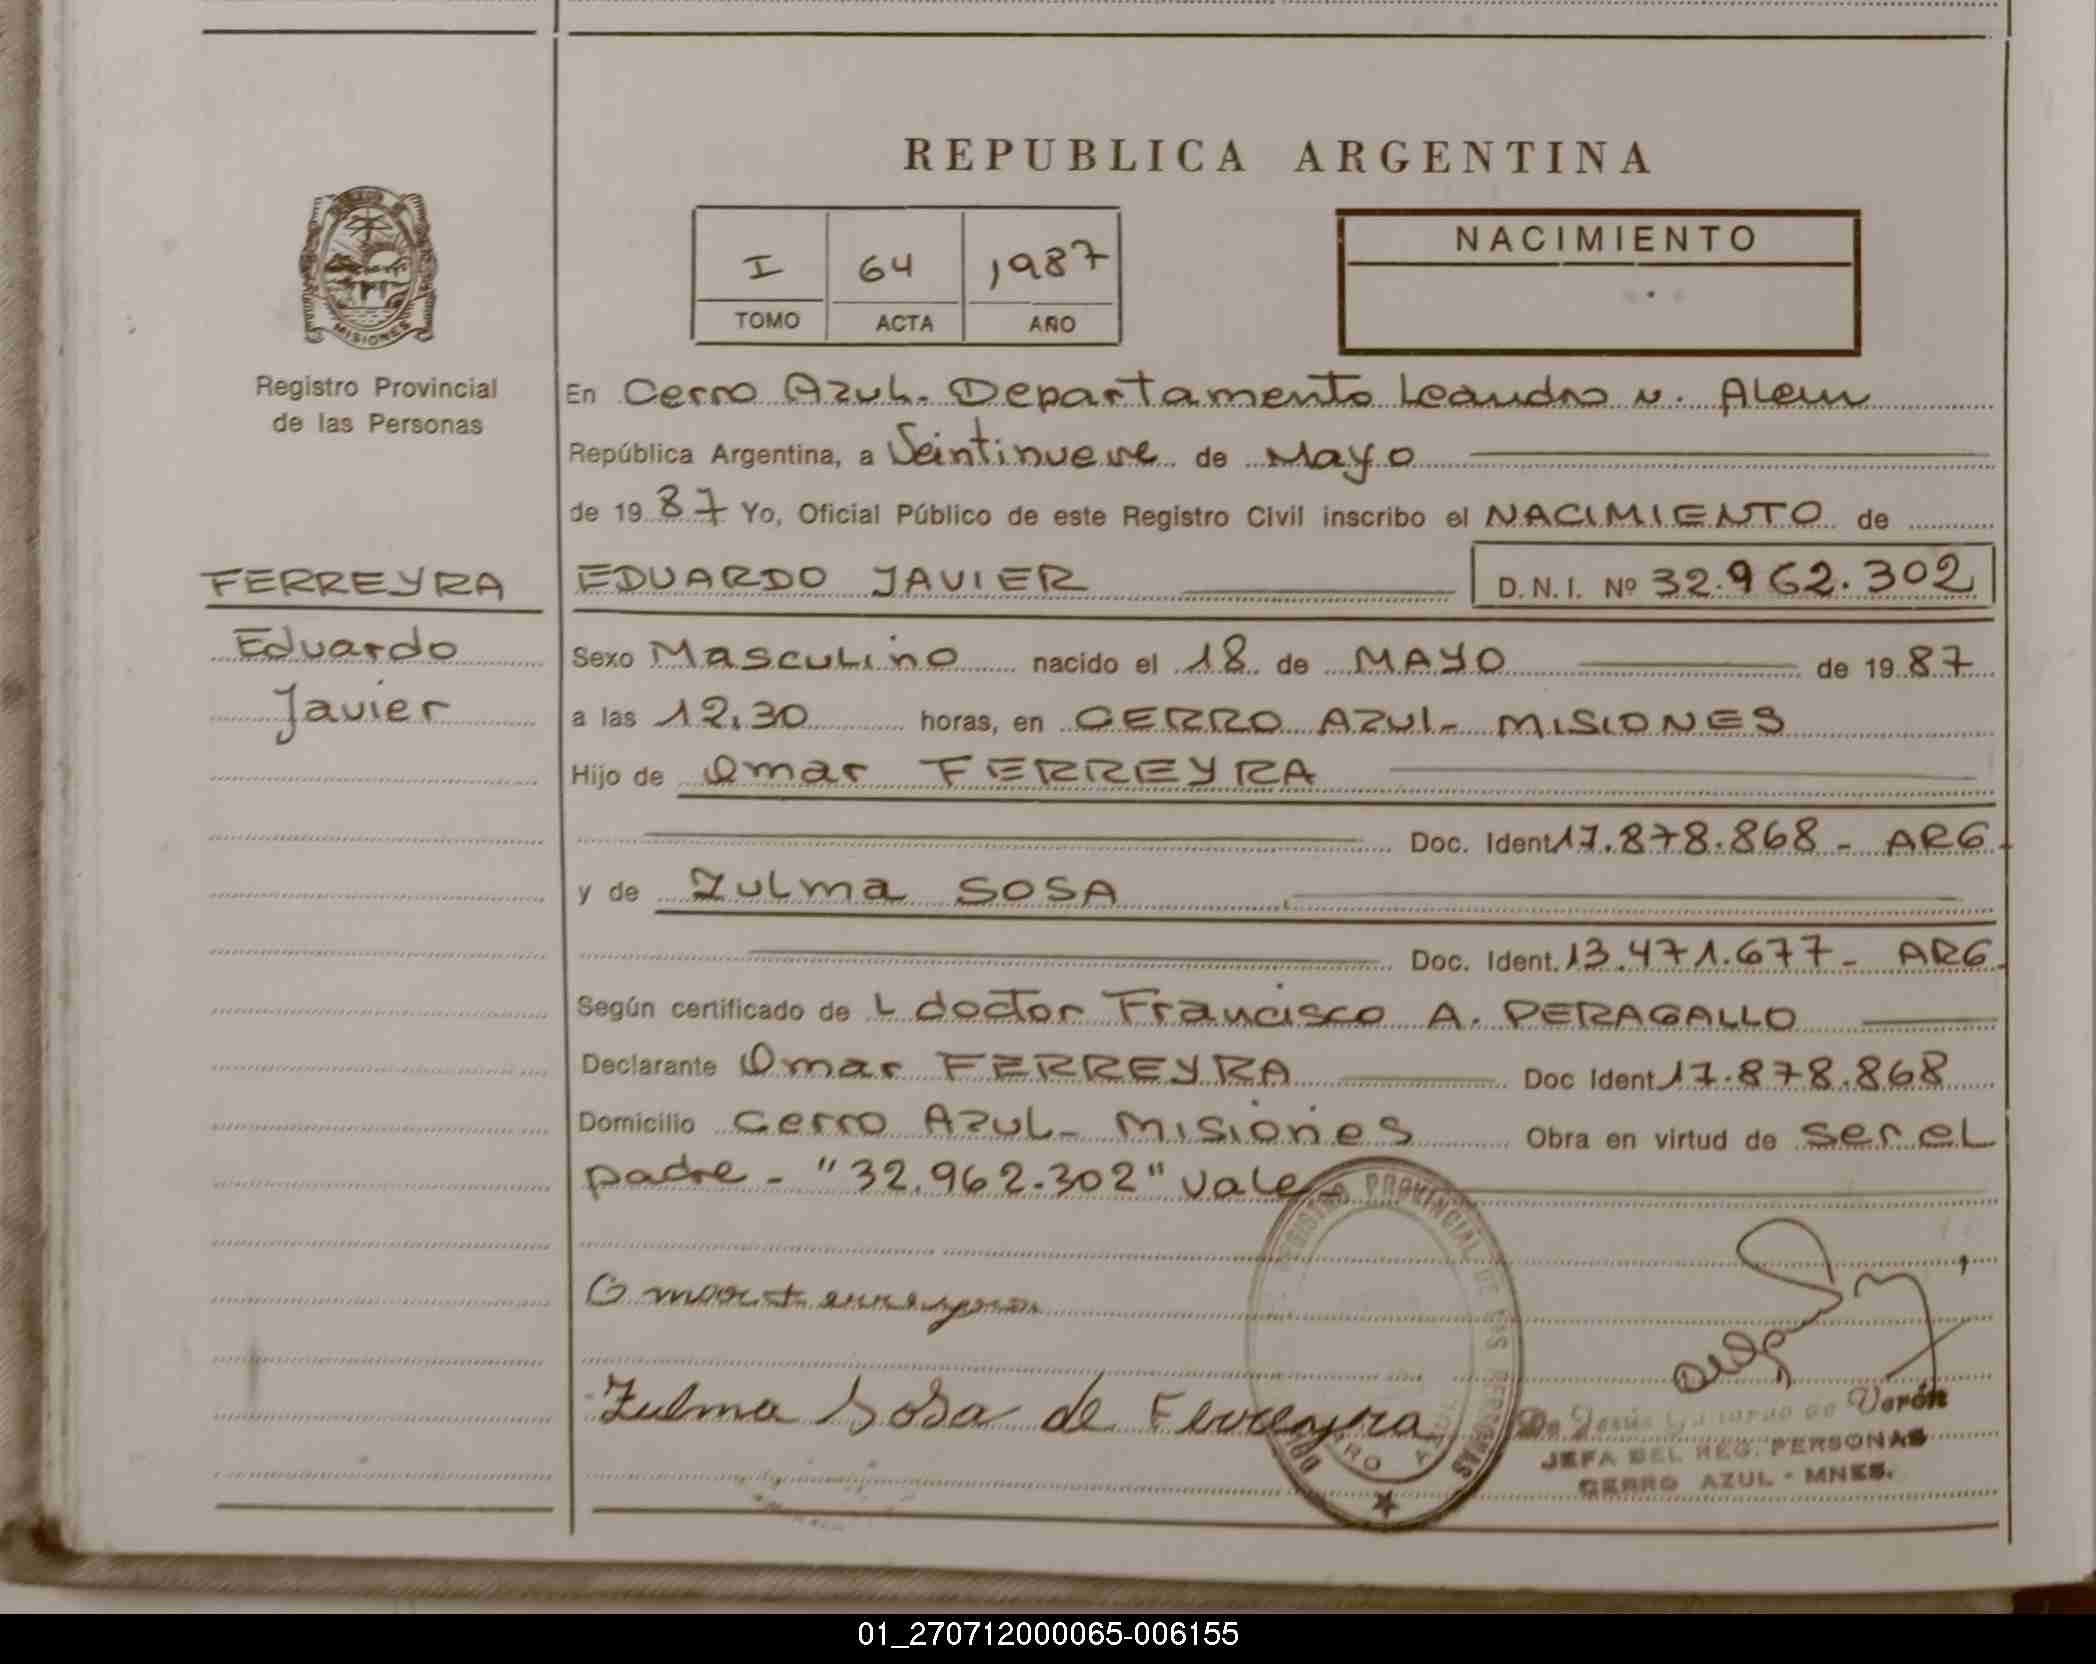 REPUBLICA ARGENTINA
MISIONES
Registro Provincial
de las Personas
I 64 1987
TOMO ACTA AÑO
NACIMIENTO
En Cerro Azul. Departamento Leandro N. Alem
República Argentina, a Veintinueve de Mayo
de 19 87 Yo, Oficial Público de este Registro Civil inscribo el NACIMIENTO de
FERREYRA
Eduardo
Javier
EDUARDO JAVIER D.N.I. Nº 32.962.302
Sexo Masculino nacido el 18 de MAYO de 19 87
a las 12.30 horas, en CERRO AZUL- MISIONES
Hijo de Omar FERREYRA
Doc. Ident 17.878.868 - ARG.
y de Zulma SOSA
Doc. Ident. 13.471.677- ARG.
Según certificado de L doctor Francisco A. PERAGALLO
Declarante Omar FERREYRA Doc Ident 17.878.868
Domicilio Cerro Azul- Misiones Obra en virtud de ser el
padre - "32.962.302" vale-
REGISTRO PROVINCIAL DE LAS PERSONAS
CERRO AZUL
Omar Ferreyra
Zulma Sosa de Ferreyra
de Verón
JEFA DEL REG. PERSONAS
CERRO AZUL - MNES.
01_270712000065-006155